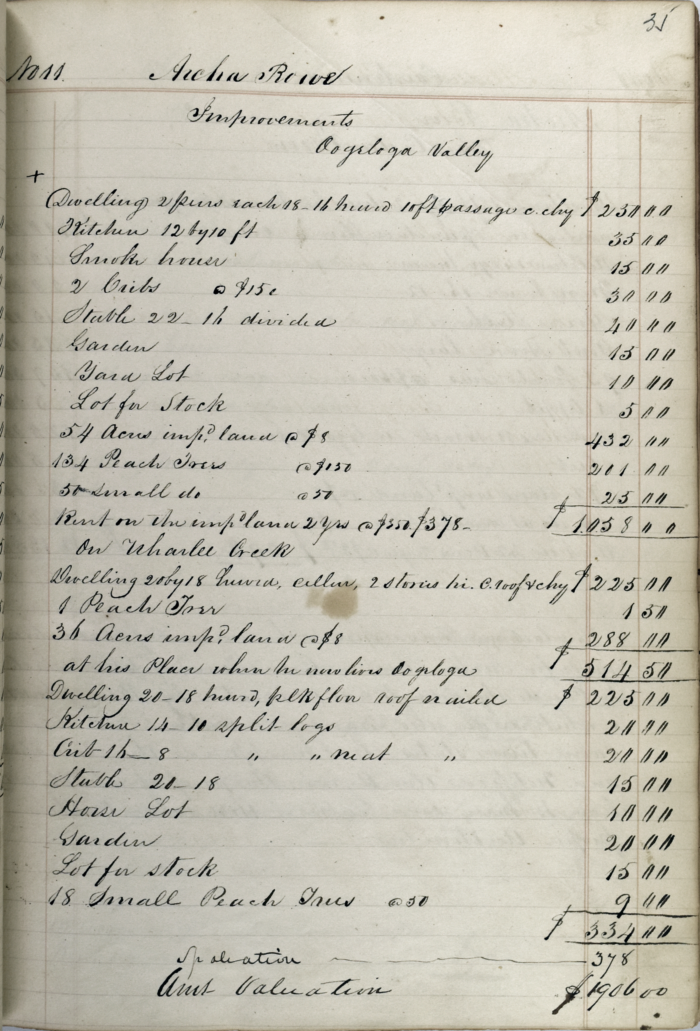 35
No 11. Archa Rowe
Improvements
Oogeloga Valley
+
Dwelling 2 pens each 18-16 hewd 10ft passage c. chy $ 250 00
Kitchen 12 by 10 ft 35 00
Smoke house 15 00
2 Cribs @ $15 c 30 00
Stable 22-16 divided 40 00
Garden 15 00
Yard Lot 10 00
Lot for Stock 5 00
54 Acres impd land @ $8 432 00
134 Peach Trees @ $150 201 00
50 small do @ 50 25 00
Rent on the impd land 2 Yrs @ $350. $378- $ 1058 00
On Wharlee Creek
Dwelling 20 by 18 hewd, celler, 2 stories hi. C. roof & chy $ 225 00
1 Peach Tree 1 50
36 Acres impd land @ $8 288 00
at his Place where he now lives Oogeloga $ 514 50
Dwelling 20-18 hewd, plk floor roof nailed $ 225 00
Kitchen 14-10 split logs 20 00
Crib 16-8 " " neat " 20 00
Stable 20-18 15 00
Horse Lot 10 00
Garden 20 00
Lot for stock 15 00
18 Small Peach Trees @ 50 9 00
$ 334 00
Spoliation 378
Amt Valuation $ 1906 00